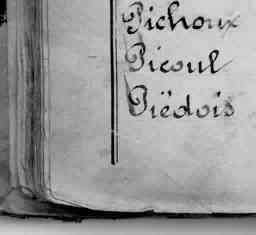 Pichoux
Picoul
Piëdois